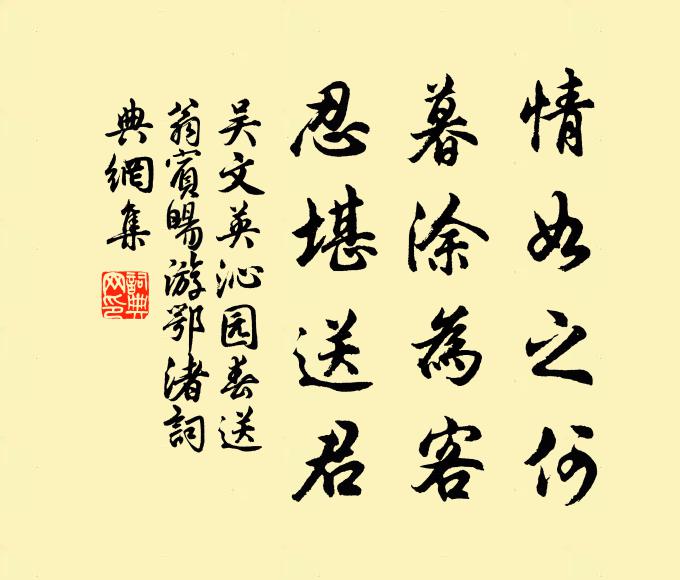 情如之何
暮涂為客
忍堪送君
吴文英沁园春送
翁賓暘游鄂渚詞
典網集
詞典
网印